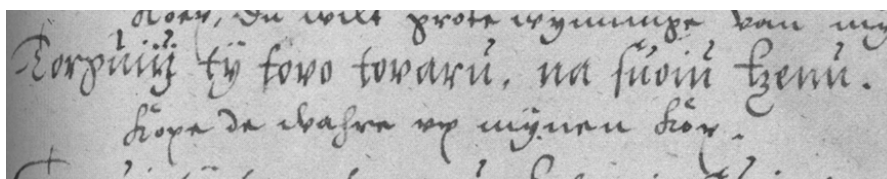 koep, du wilt grote wynninge van my
Torguiÿ tÿ tovo tovarŭ, na suoiŭ tzenŭ.
kope de wahre vp mÿnen köp.